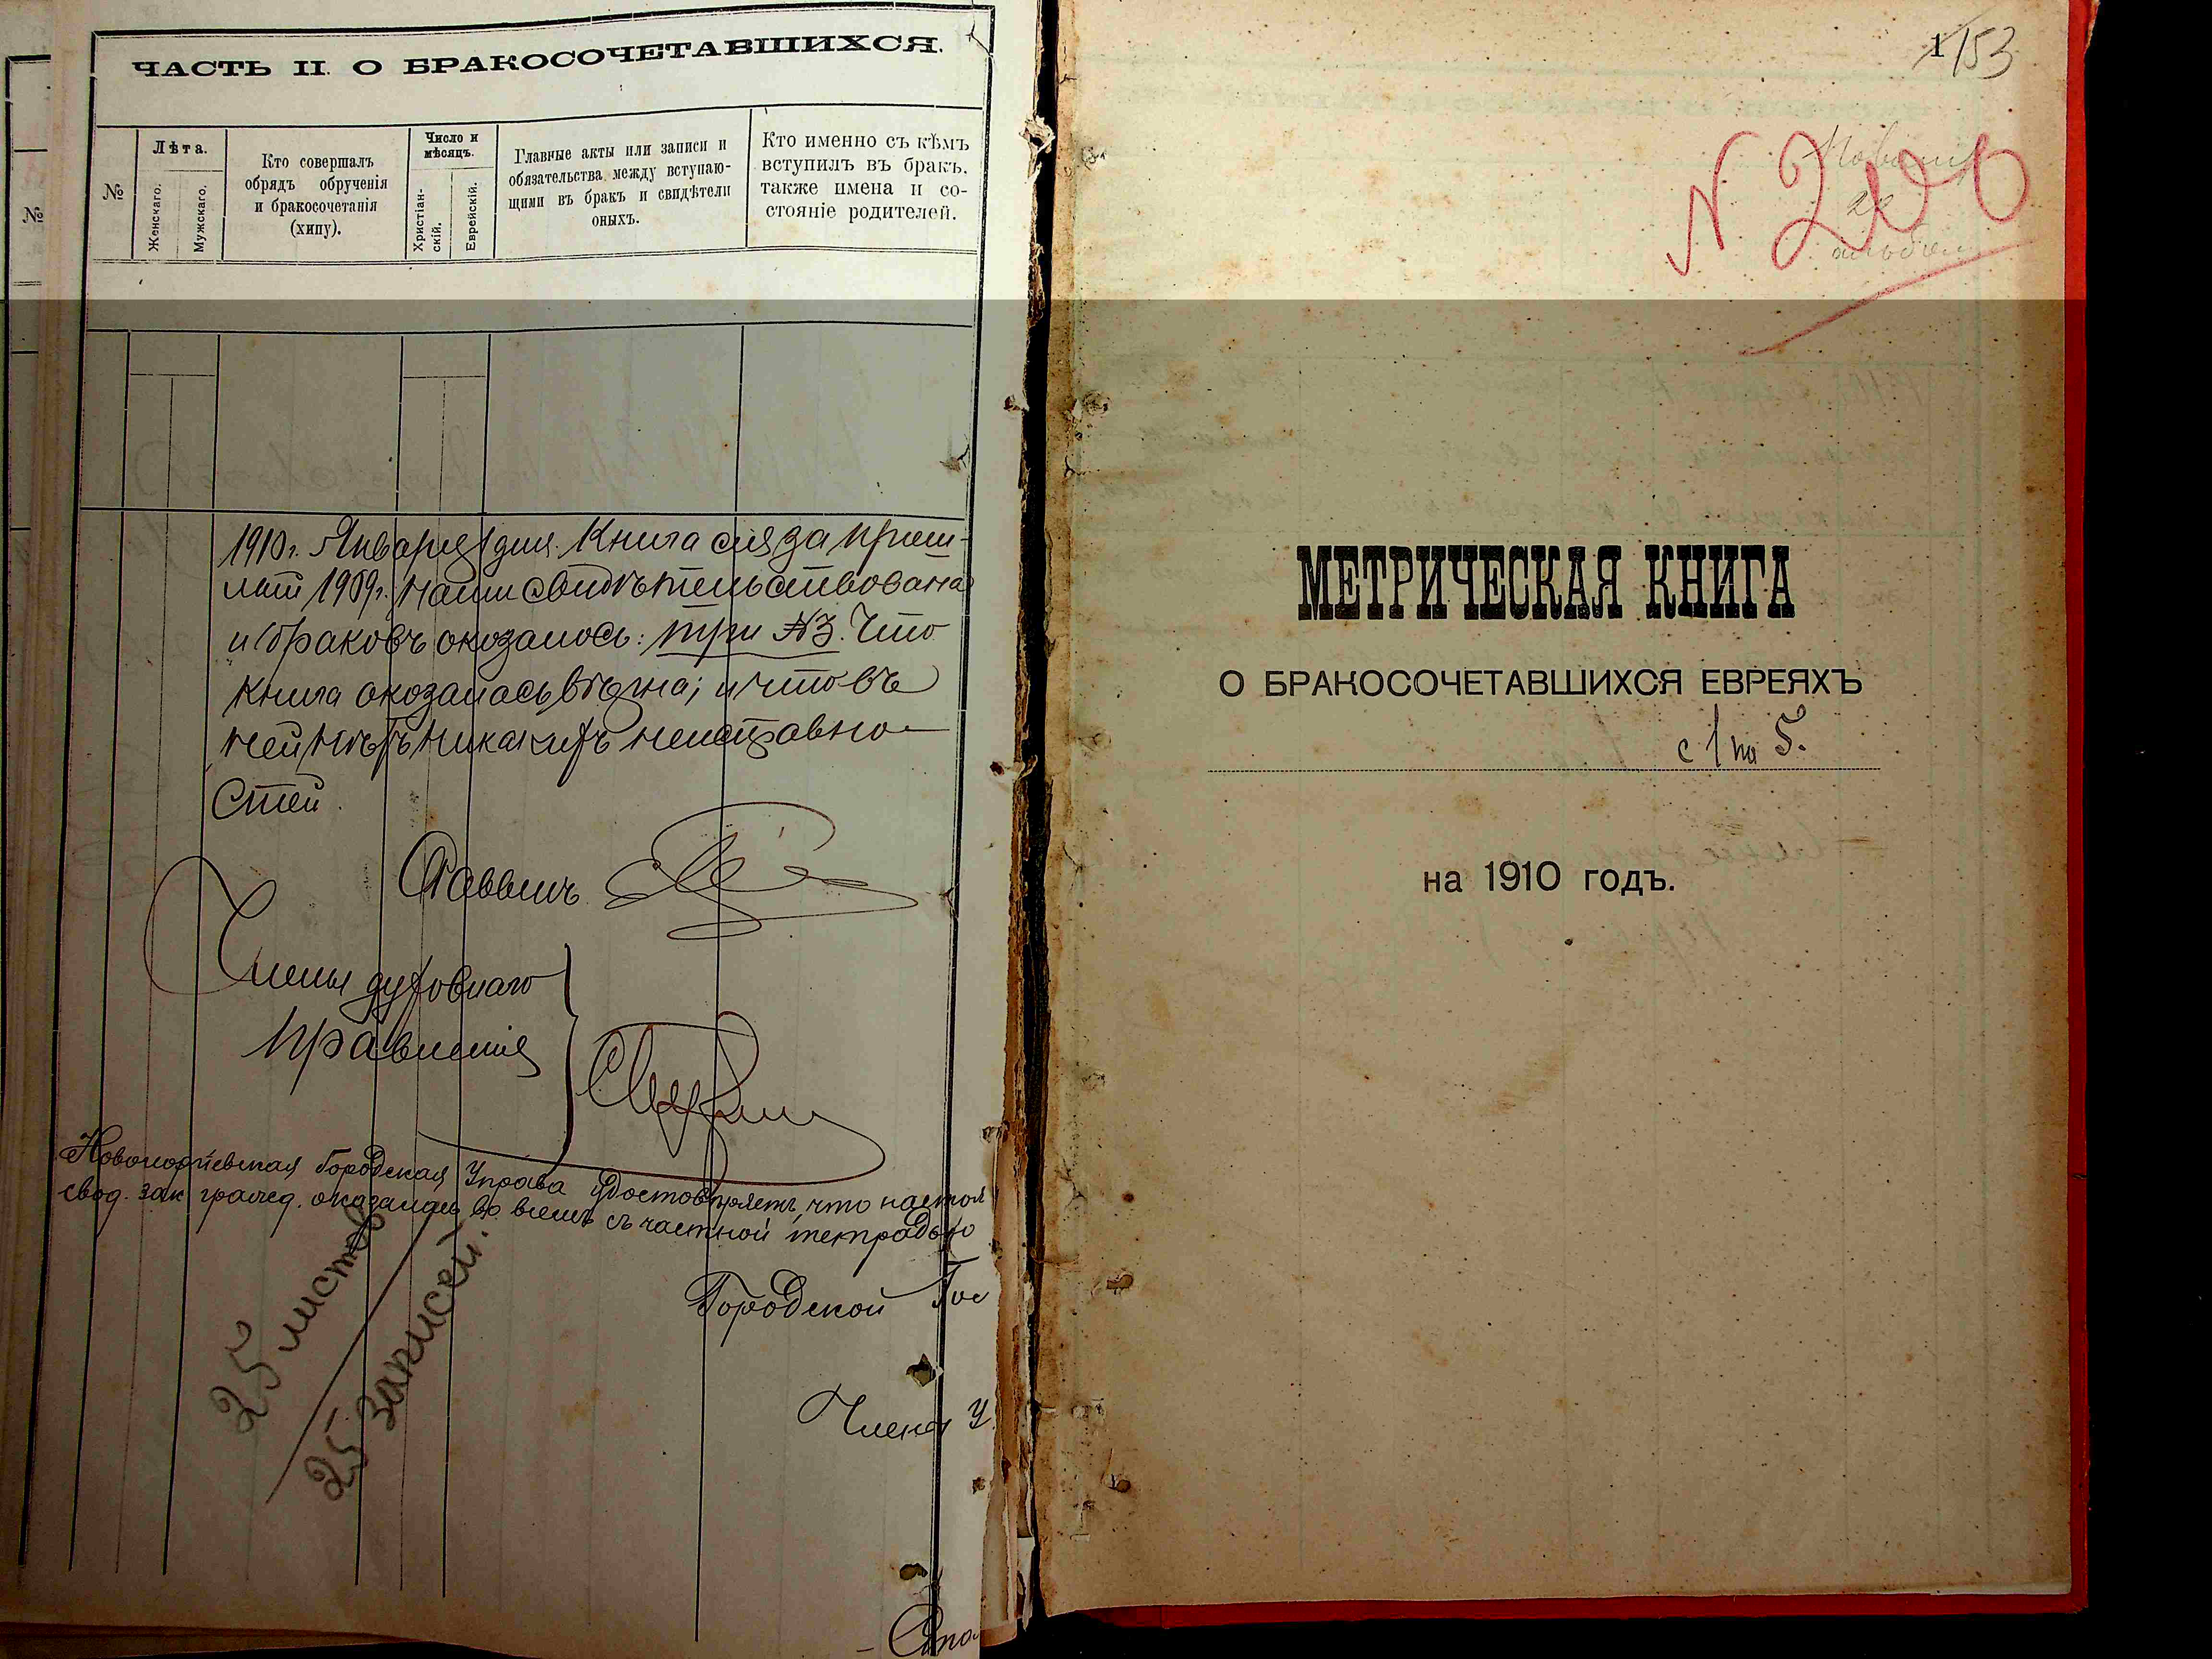 ЧАСТЬ II. О БРАКОСОЧЕТАВШИХСЯ.
№
№
Лѣта.
Женскаго.
Мужскаго.
Кто совершалъ
обрядъ обрученія
и бракосочетанія
(хипу).
Число и
мѣсяцъ.
Христіан-
скій.
Еврейскій.
Главные акты или записи и
обязательства между вступаю-
щими въ бракъ и свидѣтели
оныхъ.
Кто именно съ кѣмъ
вступилъ въ бракъ,
также имена и со-
стояніе родителей.
1910г. Января 1 дня. Книга сія за
1909г. нами свидѣтельствована
и браковъ оказалось: три №3. Что
книга оказалась вѣрна; и что въ
ней нѣтъ никакихъ неисправно-
стей.
Раввинъ
Члены духовнаго
правленія
Городская Управа удостовѣряетъ, что настоя
свод. зак. гражд. оказалась во всемъ съ частной тетрадью
Городской Гол
25 листов
25 записей.
Члены У
1 153
N 200
МЕТРИЧЕСКАЯ КНИГА
О БРАКОСОЧЕТАВШИХСЯ ЕВРЕЯХЪ
с 1 по 5.
на 1910 годъ.